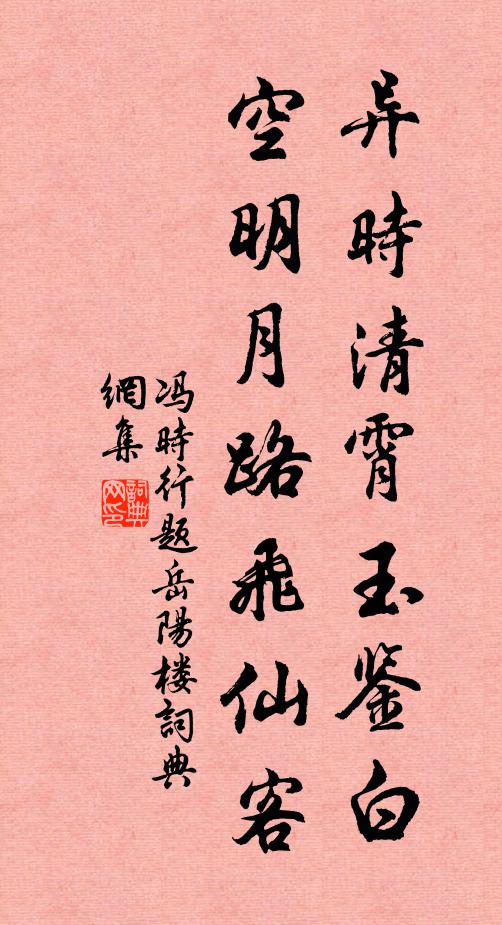 异時清霄玉鉴白
空明月路飛仙客
冯時行题岳陽楼詞典
網集
詞典网印